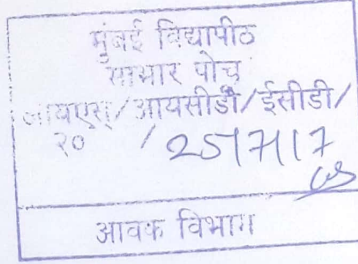 मुंबई विद्यापीठ
साभार पोच
आयएस/आयसीडी/ईसीडी/
२० / 25/7/17
आवक विभाग